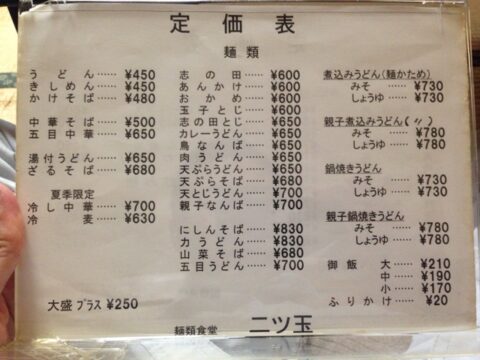 定価表
麺類
うどん……¥450
きしめん……¥450
かけそば……¥480
中華そば……¥500
五目中華……¥650
湯付うどん……¥650
ざるそば……¥680
夏季限定
冷し中華……¥700
冷麦……¥630
大盛プラス¥250
志の田……¥600
あんかけ……¥600
おかめ……¥600
玉子とじ……¥600
志の田とじ……¥650
カレーうどん……¥650
鳥なんば……¥650
肉うどん……¥650
天ぷらうどん……¥650
天ぷらそば……¥680
天とじうどん……¥700
親子なんば……¥700
にしんそば……¥830
力うどん……¥830
山菜そば……¥680
五目うどん……¥700
煮込みうどん(麺かため)
みそ……¥730
しょうゆ……¥730
親子煮込みうどん(〃)
みそ……¥780
しょうゆ……¥780
鍋焼きうどん
みそ……¥730
しょうゆ……¥730
親子鍋焼きうどん
みそ……¥780
しょうゆ……¥780
御飯 大……¥210
中……¥190
小……¥170
ふりかけ……¥20
麺類食堂 二ツ玉